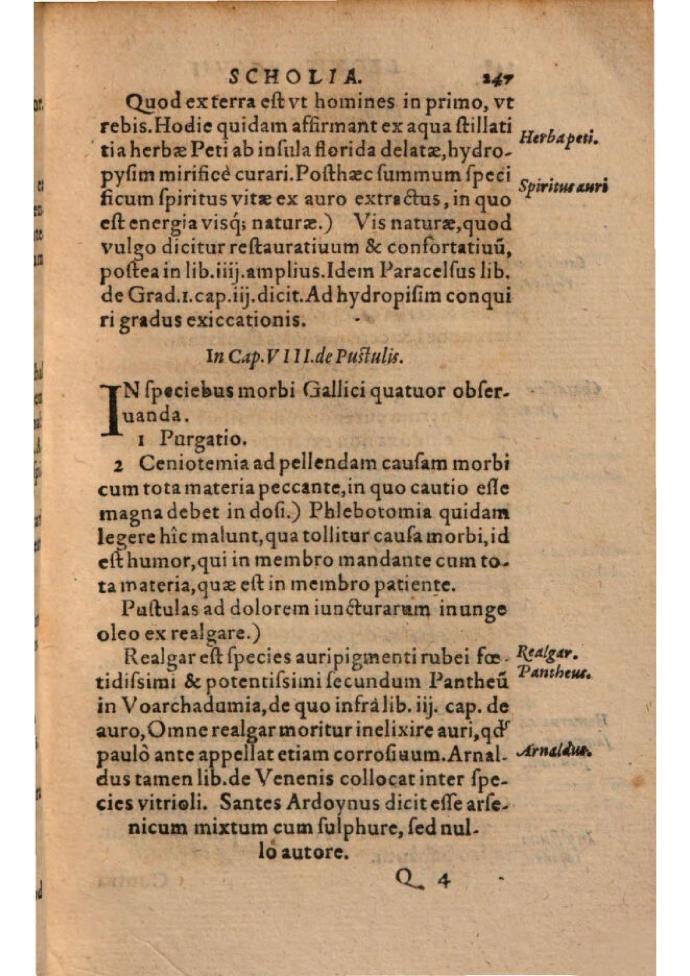 SCHOLIA. 247
Quod ex terra est vt homines in primo, vt
rebis. Hodie quidam affirmant ex aqua stillati
tia herbæ Peti ab insula florida delatæ, hydro-
Herba peti.
pysim mirificè curari. Posthæc summum speci
ficum spiritus vitæ ex auro extractus, in quo
Spiritus auri
est energia visq; naturæ.) Vis naturæ, quod
vulgo dicitur restauratiuum & confortatiuũ,
postea in lib. iiij. amplius. Idem Paracelsus lib.
de Grad. 1. cap. iij. dicit. Ad hydropisim conqui
ri gradus exiccationis.
In Cap. VIII. de Pustulis.
IN speciebus morbi Gallici quatuor obser-
uanda.
1 Purgatio.
2 Ceniotemia ad pellendam causam morbi
cum tota materia peccante, in quo cautio esse
magna debet in dosi.) Phlebotomia quidam
legere hîc malunt, qua tollitur causa morbi, id
est humor, qui in membro mandante cum to-
ta materia, quæ est in membro patiente.
Pustulas ad dolorem iuncturarum inunge
oleo ex realgare.)
Realgar est species auripigmenti rubei fœ-
Realgar.
tidissimi & potentissimi secundum Pantheũ
Pantheus.
in Voarchadumia, de quo infrà lib. iij. cap. de
auro, Omne realgar moritur in elixire auri, qđ
paulò ante appellat etiam corrosiuum. Arnal-
Arnaldus.
dus tamen lib. de Venenis collocat inter spe-
cies vitrioli. Santes Ardoynus dicit esse arse-
nicum mixtum cum sulphure, sed nul-
lo autore.
Q 4